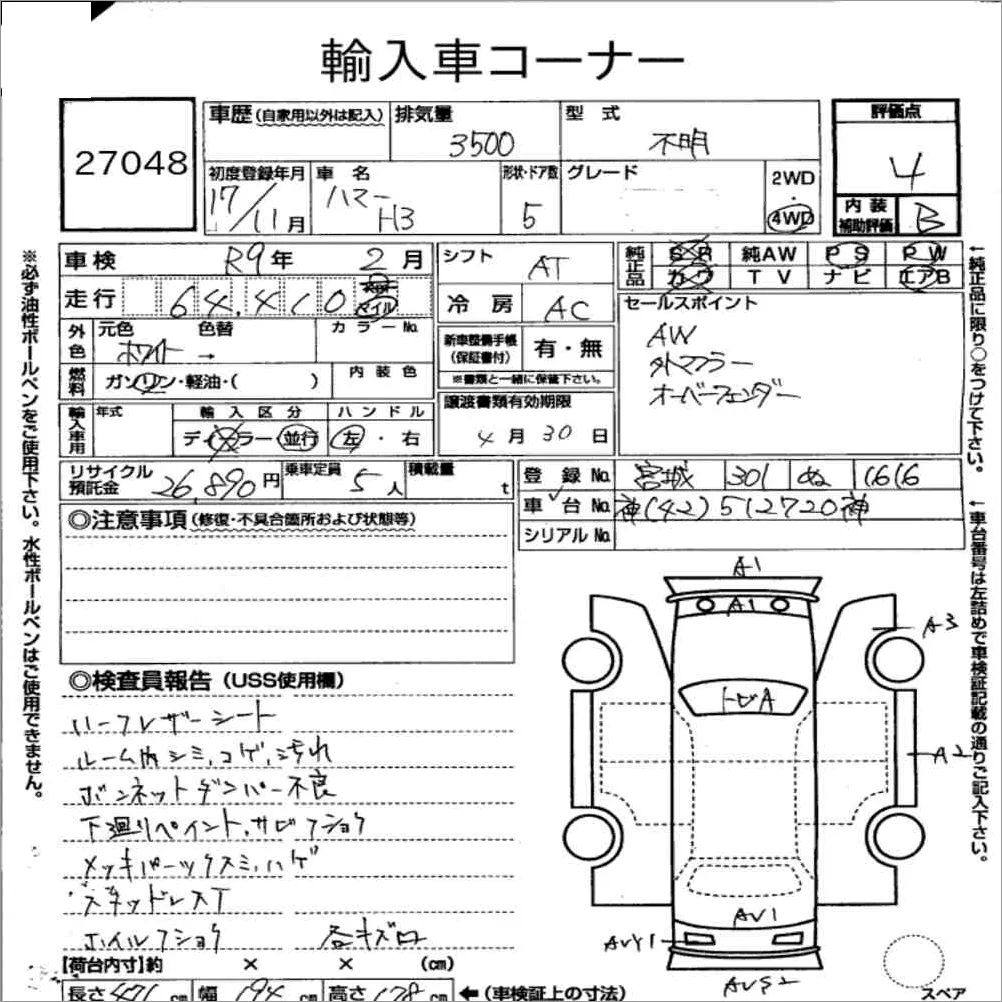 輸入車コーナー
27048
車歴 (自家用以外は記入)
排気量 3500
型式 不明
評価点 4
初度登録年月 17/11月
車名 ハマー H3
形状・ドア数 5
グレード
2WD
4WD
内装補助評価 B
車検 R9年 2月
シフト AT
純正品 SR 純AW PS PW
カワ TV ナビ エアB
走行 64,410 マイル
冷房 AC
セールスポイント
AW
外マフラー
オーバーフェンダー
外色 元色 色替 カラーNo.
ホワイト →
新車整備手帳(保証書付) 有・無
※書類と一緒に保管下さい。
燃料 ガソリン・軽油・( )
内装色
譲渡書類有効期限
4月30日
輸入車用 年式 輸入区分 ハンドル
ディーラー 並行 左・右
リサイクル預託金 26,890円
乗車定員 5人
積載量 t
登録No. 宮城 301 ぬ 1616
車台No. 神(42)512720神
シリアルNo.
◎注意事項 (修復・不具合箇所および状態等)
◎検査員報告 (USS使用欄)
ハーフレザーシート
ルーム内シミ,コゲ,汚れ
ボンネットダンパー不良
下廻りペイント,サビフショク
メッキパーツクスミ,ハゲ
スキッドレスT
ホイルフショク 各キズロ
A1
A1
A3
トビA
A2
AU1
AUY1
AUS2
スペア
【荷台内寸】約 × × (cm)
長さ 471 cm 幅 194 cm 高さ 178 cm ←(車検証上の寸法)
※必ず油性ボールペンをご使用下さい。水性ボールペンはご使用できません。
←純正品に限り○をつけて下さい。
←車台番号は左詰めで車検証記載の通りご記入下さい。